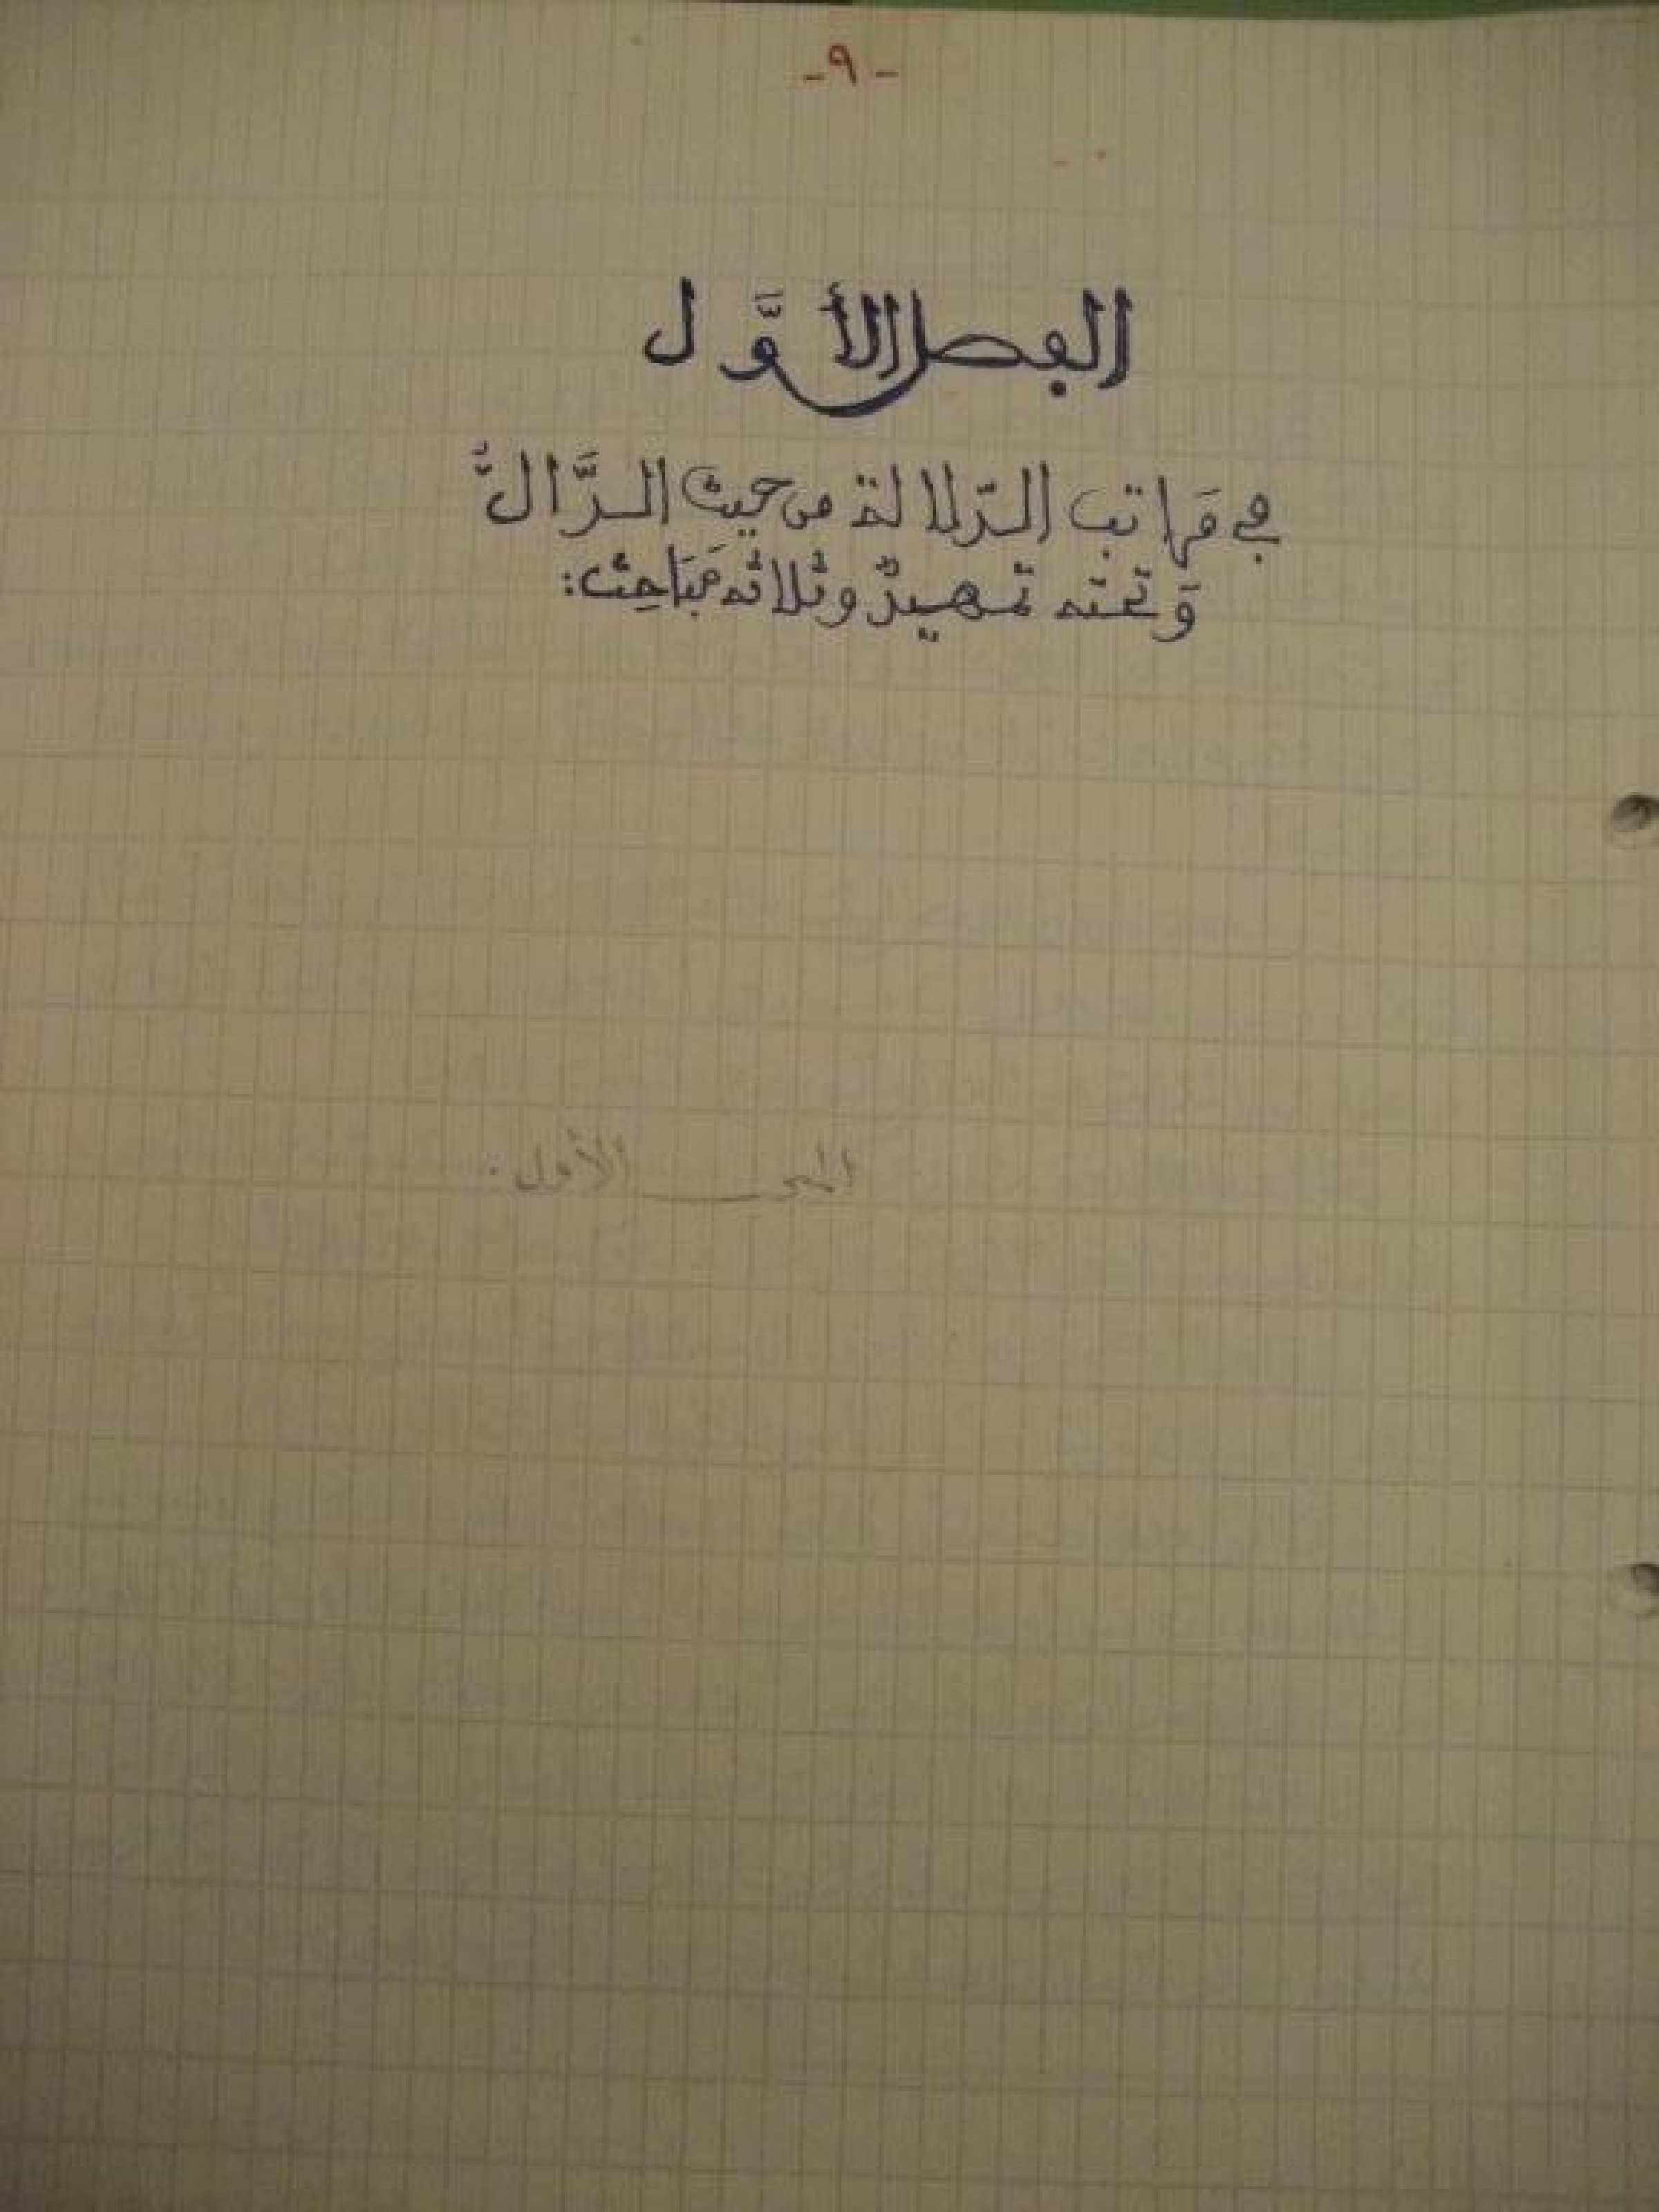 -٩-
الفصل الأوَّل
في مَراتب الدّلالة من حيث الدَّالُّ
وَتحته تمهيدٌ وثلاثة مَبَاحِث:
المبحث الأول.